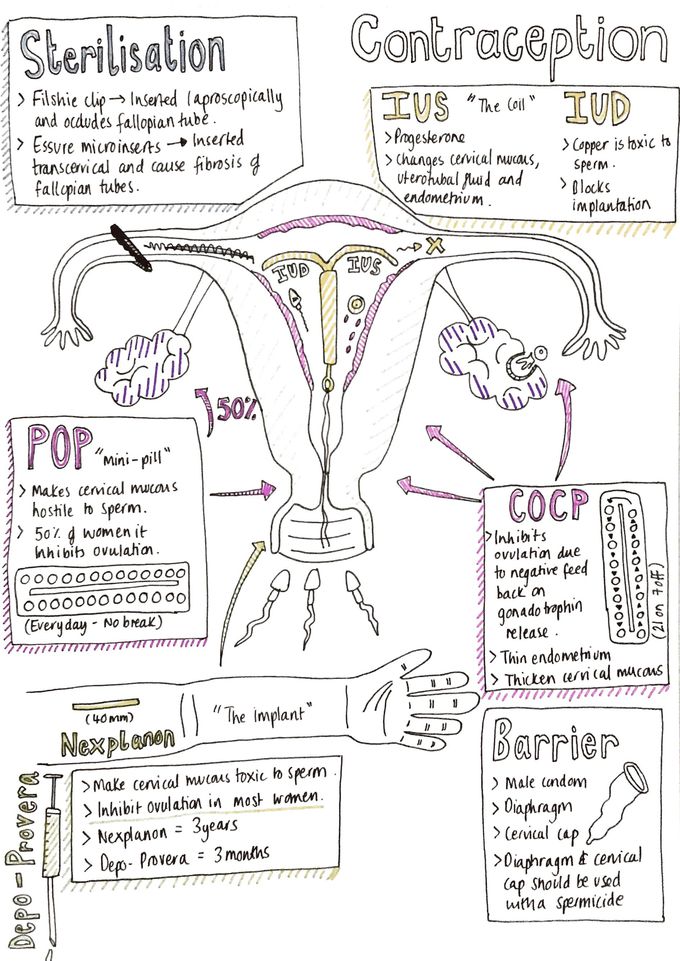 Contraception
Sterilisation
> Filshie clip → Inserted laproscopically
and occludes fallopian tube.
> Essure microinserts → Inserted
transcervical and cause fibrosis of
fallopian tubes.
IUS "The Coil" IUD
> Progesterone
> Changes cervical mucous,
uterotubal fluid and
endometrium.
> Copper is toxic to
sperm.
> Blocks
implantation
IUD IUS
50%
POP "mini-pill"
> Makes cervical mucous
hostile to sperm.
> 50% of women it
inhibits ovulation.
(Everyday - No break)
COCP
> Inhibits
ovulation due
to negative feed
back on
gonadotrophin
release.
> Thin endometrium
> Thicken cervical mucous
(21 on 7 off)
(40mm)
Nexplanon
"The Implant"
Depo-Provera
> Make cervical mucous toxic to sperm.
> Inhibit ovulation in most women.
> Nexplanon = 3 years
> Depo-Provera = 3 months
Barrier
> Male condom
> Diaphragm
> Cervical cap
> Diaphragm & cervical
cap should be used
with a spermicide